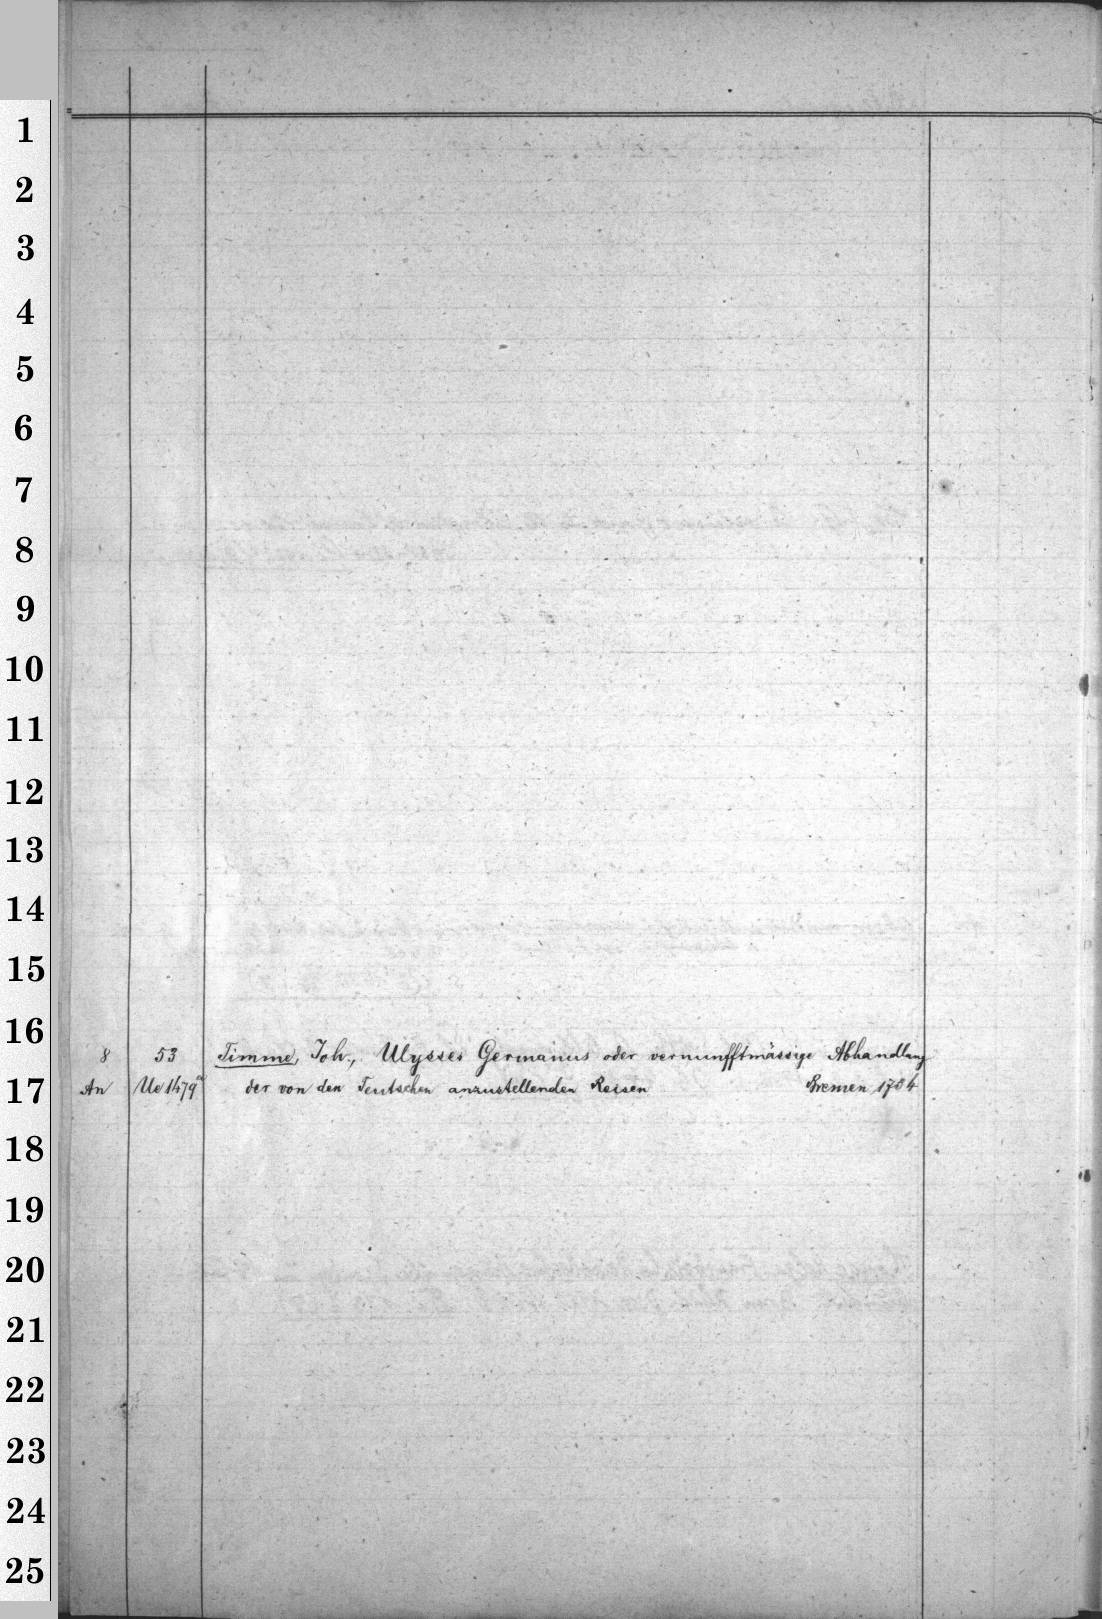 1
2
3
4
5
6
7
8
9
10
11
12
13
14
15
16
8 53 Timme, Joh., Ulysses Germanus oder vernunfftmässige Abhandlung
17
An Ue 1479 der von den Teutschen anzustellenden Reisen Bremen 1704
18
19
20
21
22
23
24
25